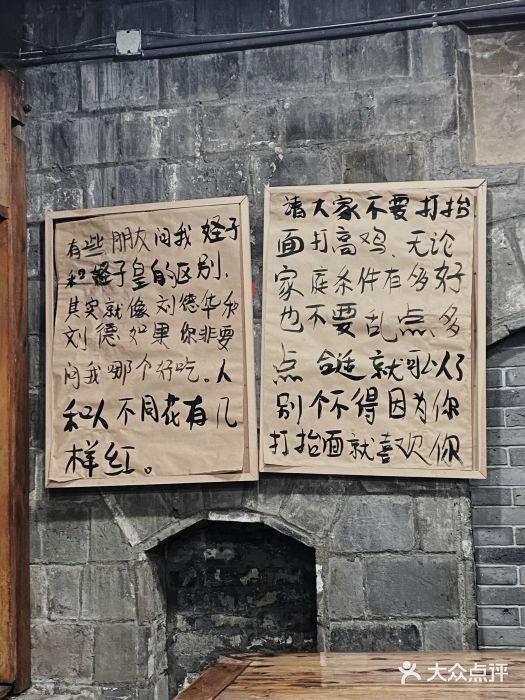 有些朋友问我蛏子
和蛏子皇的区别,
其实就像刘德华和
刘德如果你非要
问我哪个好吃。人
和人不同花有几
样红。
请大家不要打抬
面打高鸡,无论
家庭条件有多好
也不要乱点多
点 合适就
别个不得因为你
打抬面就喜欢你
大众点评